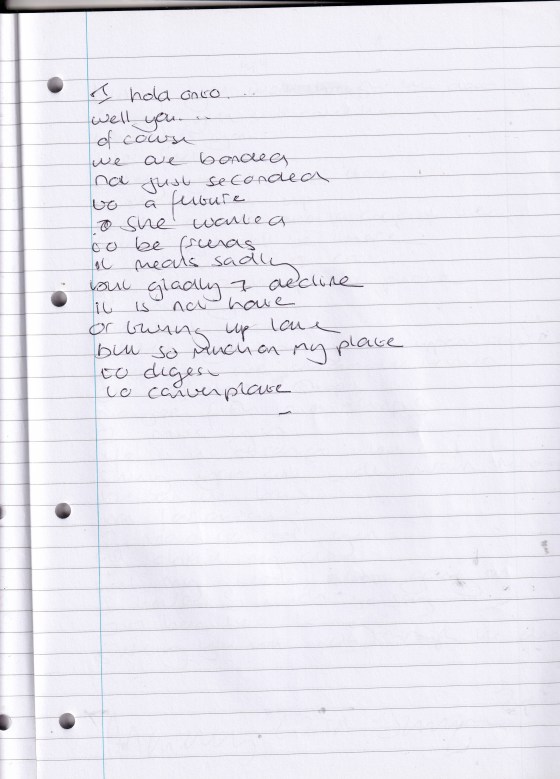 I hold onto...
well you....
of course
we are bonded
not just seconded
to a future
she wanted
to be friends
it meals sadly
but gladly I decline
it is not hate
or turning up late
but so much on my plate
to digest
to contemplate